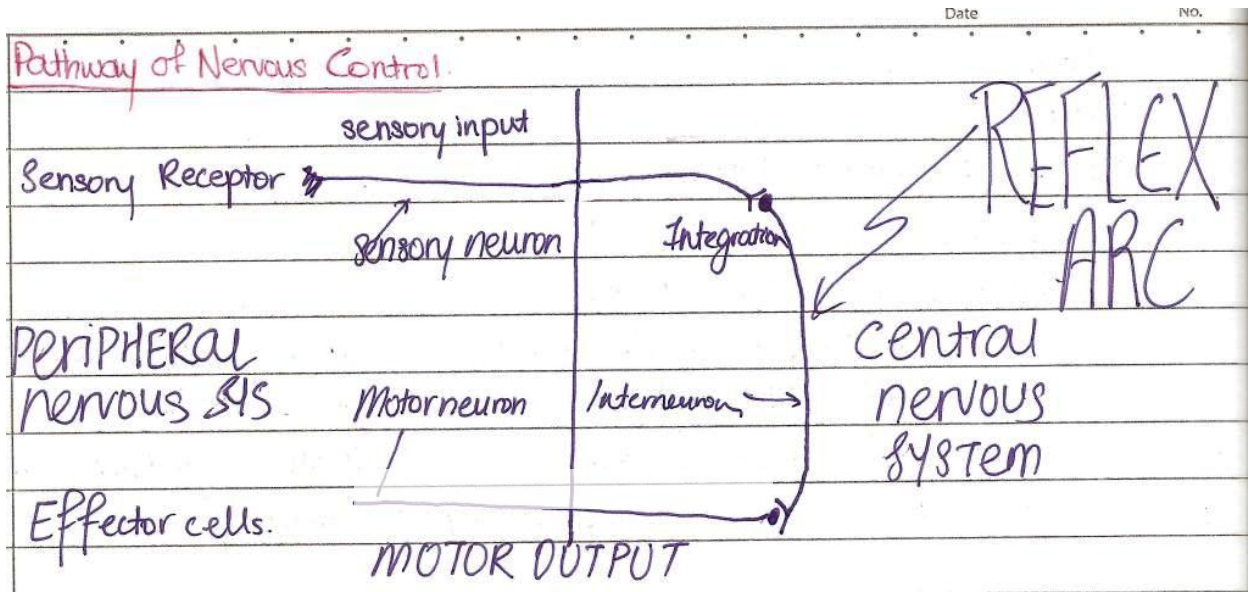 Date No.
Pathway of Nervous Control.
sensory input
Sensory Receptor
sensory neuron
Integration
REFLEX
ARC
PERIPHERAL
nervous SYS.
Motor neuron
Interneuron
central
nervous
system
Effector cells.
MOTOR OUTPUT